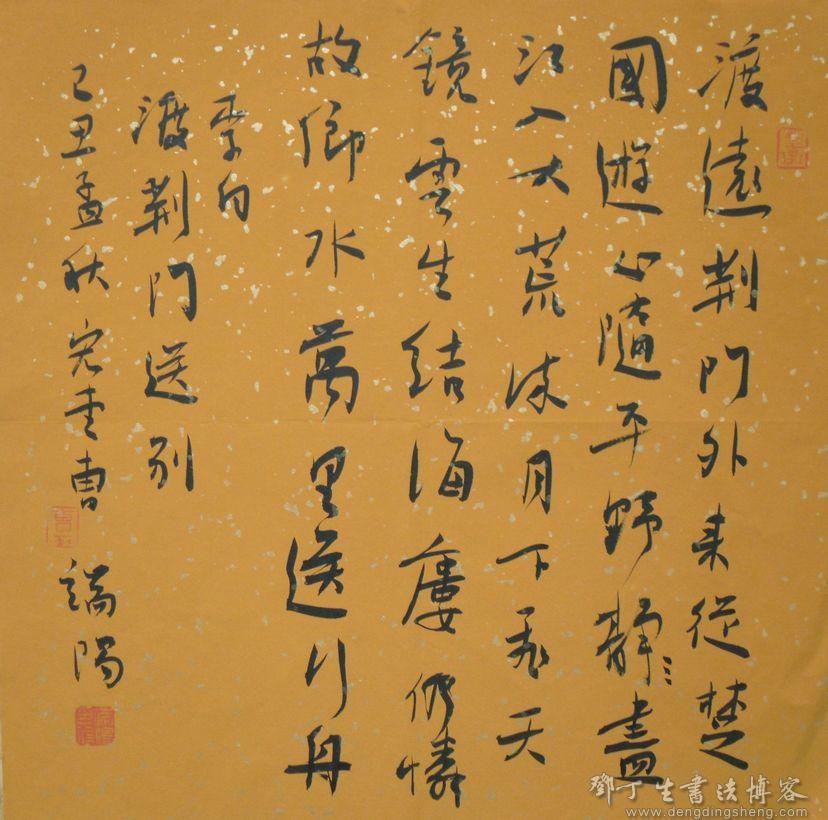 渡遠荆門外来從楚
國遊山隨平野靜盡
江入大荒流月下飛天
鏡雲生結海樓仍憐
故鄉水萬里送行舟
李白
渡荆門送别
己丑孟秋曹端陽
鄧丁生書法博客
www.dengdingsheng.com